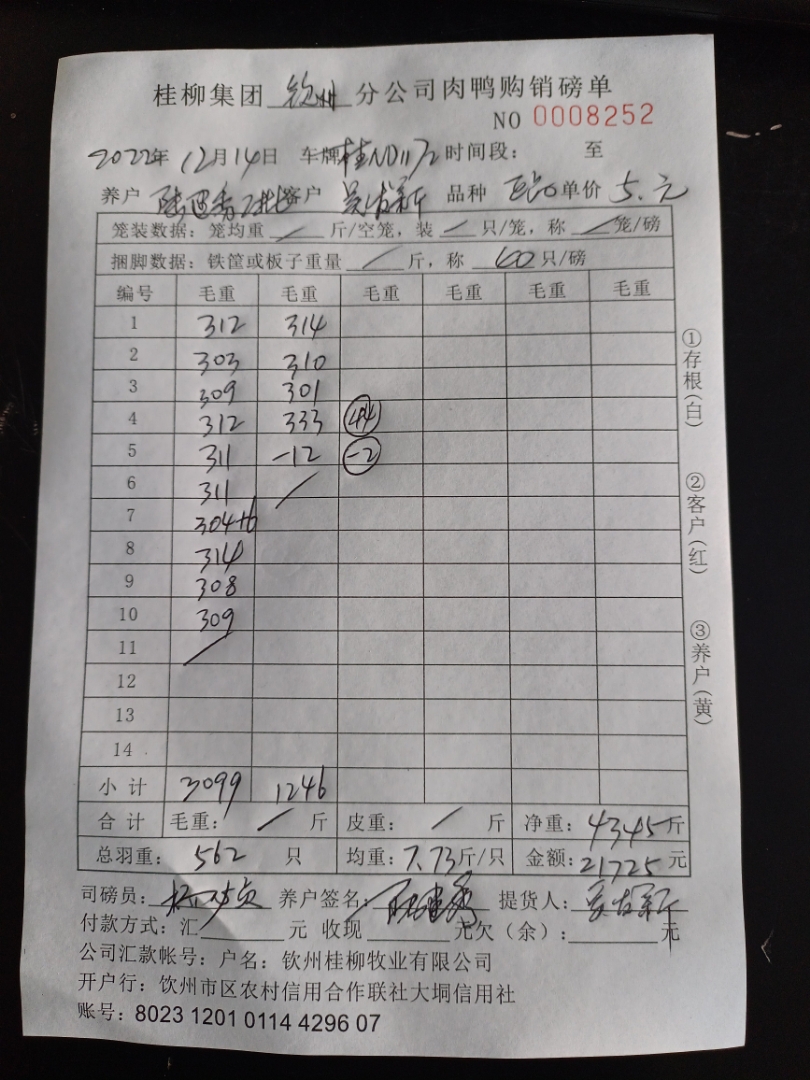 桂柳集团 钦州 分公司肉鸭购销磅单
NO 0008252
2022年 12月14日 车牌桂ND1172 时间段： 至
养户 客户 品种 单价 5.元
笼装数据：笼均重 / 斤/空笼，装 / 只/笼，称 / 笼/磅
捆脚数据：铁筐或板子重量 / 斤，称 40 只/磅
编号 毛重 毛重 毛重 毛重 毛重 毛重
1 312 314
2 303 310
3 309 301
4 312 333 44
5 311 -12 -2
6 311 /
7 304+6
8 314
9 308
10 309
11 /
12
13
14
小计 3099 1246
合计 毛重： / 斤 皮重： / 斤 净重：4345斤
总羽重： 562 只 均重：7.73斤/只 金额：21725元
司磅员： 养户签名： 提货人：
付款方式：汇 元 收现 元欠（余）： 元
公司汇款帐号：户名：钦州桂柳牧业有限公司
开户行：钦州市区农村信用合作联社大垌信用社
账号：8023 1201 0114 4296 07
①存根(白)
②客户(红)
③养户(黄)